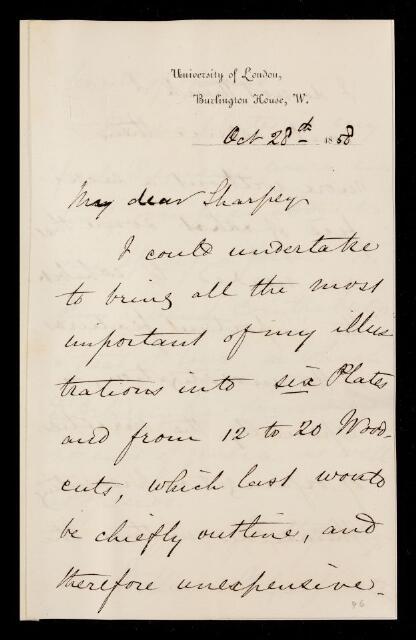 University of London,
Burlington House, W.
Oct 28th 1858
My dear Sharpey
I could undertake
to bring all the most
important of my illus
trations into six Plates
and from 12 to 20 Wood-
cuts, which last would
be chiefly outline, and
therefore unexpensive.